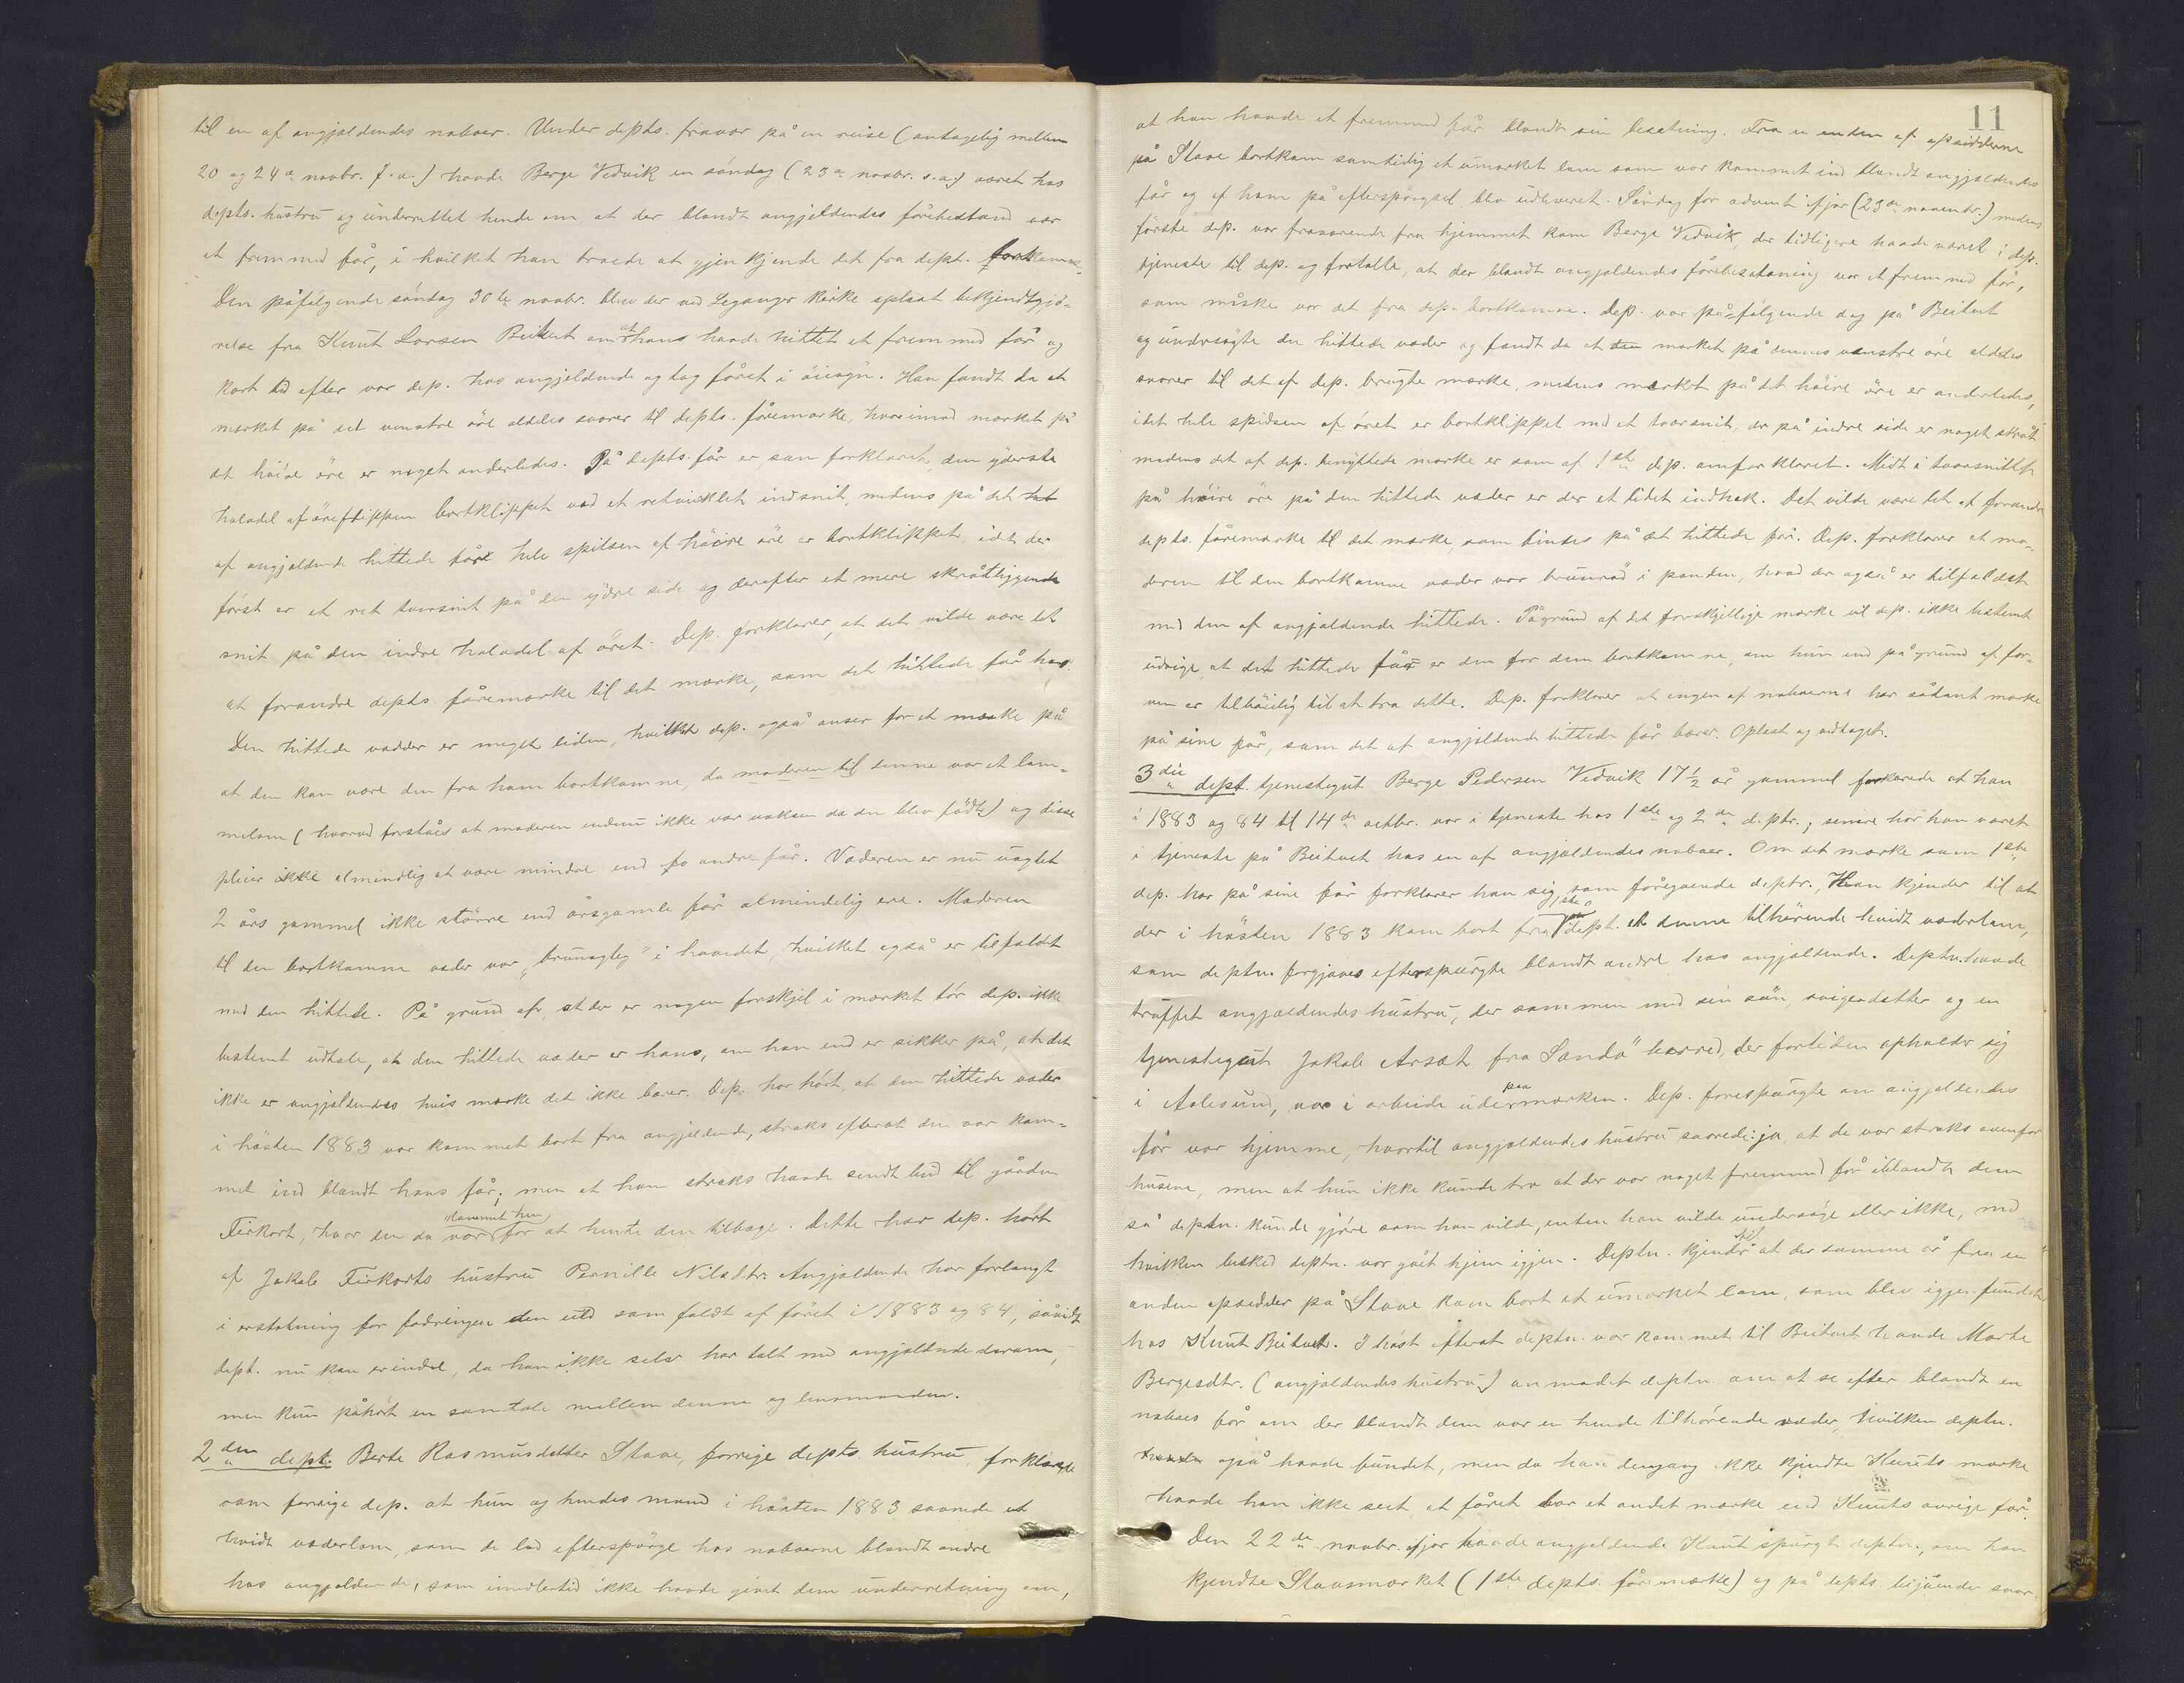 til en af angjældendes naboer. Under depts. fravær på en reise (antagelig mellem
20 og 24de novbr. f. a.) havde Berge Vedvik en söndag (23de novbr. s. a.) været hos
depts. hustru og underrettet hende om, at der blandt angjeldendes fårebestand var
et fremmed får, i hvilket han troede at gjenkjende det fra dept. bortkomne.
Den påfølgende söndag 30te novbr. blev der ved Leganger kirke oplæst bekjendtgjö-
relse fra Knut Larsen Beitveit om at hans havde hittet et fremmed får og
kort tid efter var dep. hos angjeldende og tog fåret i öiesyn. Han fandt da at
mærket på det venstre öre aldeles svarer til depts. fåremærke, hvorimod mærket på
det höire öre er noget anderledes. På depts. får er, som forklaret, den yderste
halvdel af öreflippen bortklippet ved et retvinklet indsnit, medens på det
af angjældende hittede får hele spidsen af höire öre er bortklippet, idet der
först er et ret tversnit på den ydre side og derefter et mere skråtliggende
snit på den indre halvdel af öret. Dep. forklarer, at det vilde være let
at forandre depts. fåremærke til det mærke, som det hittede får har.
Den hittede vædder er meget liden, hvilket dep. også anser for et mærke på
at den kan være den fra ham bortkomne, da moderen til denne var et lam-
melam (hvorved forståes at moderen endnu ikke var voksen da den blev född) og disse
pleier ikke almindelig at være mindre end andre får. Væderen er nu uagtet
2 års gammel ikke större end årsgamle får almindelig ere. Moderen
til den bortkomne væder var "brunagtig" i hovedet, hvilket også er tilfældet
med den hittede. På grund af, at der er nogen forskjel i mærket tör dep. ikke
bestemt udtale, at den hittede væder er hans, om han end er sikker på, at det
ikke er angjældendes hvis mærke det ikke bærer. Dep. har hört, at den hittede væder
i hösten 1883 var kommet bort fra angjeldende, straks efterat den var kom-
met ind blandt hans får; men at han straks havde sendt bud til gården
kommet hen
Firkort, hvor en da var for at hente den tilbage. Dette har dep. hört
af Jakob Firkorts hustru Pernille Nilsdtr. Angjældende har forlangt
i erstatning for fodringen den uld som faldt af fåret i 1883 og 84, såvidt
dept. nu kan erindre, da han ikke selv har talt med angjældende derom,
men kun påhört en samtale mellem denne og lensmanden.
2den dept. Berte Rasmusdatter Stave, forrige depts. hustru, forklarede
som forrige dep. at hun og hendes mand i hösten 1883 savnede et
hvidt væderlam, som de lod efterspörge hos naboerne blandt andre
hos angjældende, som imidlertid ikke havde givet dem underretning om,
11
at han havde et fremmed får blandt sin besætning. Fra en anden af opsidderne
på Stave bortkom samtidig et umærket lam som var kommet ind blandt angjældendes
får og af ham på efterspörgsel blev udleveret. Söndag för advent ifjor (23de novembr.) medens
förste dep. var fraværende fra hjemmet kom Berge Vedvik, der tidligere havde været i dep.
tjeneste til dep. og fortalte, at der blandt angjældendes fårebesætning var et fremmed får,
som måske var det fra dep. bortkomne. Dep. var på-følgende dag på Beitveit
og undersögte den hittede væder og fandt da at mærket på dennes venstre öre aldeles
svarer til det af dep. brugte mærke, medens mærket på det höire öre er anderledes,
idet hele spidsen af öret er bortklippet med et tversnit, der på indre side er noget skråt
medens det af dep. benyttede mærke er som af 1ste dep. omforklaret. Midt i tversnittet
på höire öre på den hittede væder er der et lidet indhak. Det vilde være let at forandre
depts. fåremærke til det mærke, som findes på det hittede får. Dep. forklarer at mo-
deren til den bortkomne væder var brunröd i panden, hvad der også er tilfældet
med den af angjældende hittede. På grund af det forskjellige mærke vil dep. ikke bestemt
udsige, at det hittede får er den for dem bortkomne, om hun end på grund af far-
ven er tilböielig til at tro dette. Dep. forklarer at ingen af naboerne har sådant mærke
på sine får, som det af angjældende hittede får bærer. Oplæst og vedtaget.
3die dept. tjenestegut Berge Pedersen Vedvik 17½ år gammel forklarede at han
i 1883 og 84 til 14de octbr. var i tjeneste hos 1ste og 2den deptr.; senere har han været
i tjeneste på Beitveit hos en af angjældendes naboer. Om det mærke som 1ste
dep. har på sine får forklarer han sig som foregående deptr. Han kjender til at
1ste
der i hösten 1883 kom bort fra dept. et denne tilhörende hvidt væderlam,
som deptn. forgjæves efterspurgte blandt andre hos angjældende. Deptn. havde
truffet angjældendes hustru, der sammen med sin sön, svigerdatter og en
tjenestegut Jakob Arsæt fra Sandö herred, der fortiden opholder sig
paa
i Aalesund, var i arbeide ude marken. Dep. forespurgte om angjældendes
får var hjemme, hvortil angjældendes hustru svarede: ja, at de var straks ovenfor
husene, men at hun ikke kunde tro at der var noget fremmed får iblandt dem
så deptn. kunde gjöre som han vilde, enten han vilde undersöge eller ikke, med
hvilken besked deptn. var gået hjem igjen. Deptn. kjender til at der samme år fra en
anden opsidder på Stave kom bort et umærket lam, som blev igjenfundet
hos Knut Beitveit. I höst efterat deptn. var kommet til Beitveit havde Marte
Bergesdtr. (angjældendes hustru) anmodet deptn. om at se efter blandt en
naboes får om der blandt dem var en hende tilhörende væder, hvilken deptn.
også havde fundet, men da han dengang ikke kjendte Knuts mærke
havde han ikke seet, at fåret bar et andet mærke end Knuts övrige får.
Den 22de novbr. ifjor havde angjældende Knut spurgt deptn., om han
kjendte Stavsmærket (1ste depts. fåremærke) og på depts. bejaende svar